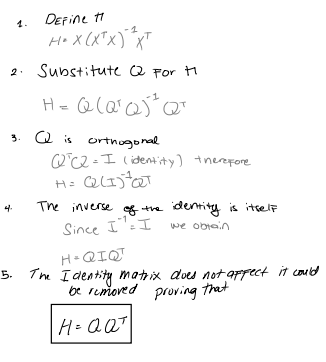 1. Define H
H = X(XᵀX)⁻¹Xᵀ
2. Substitute Q For H
H = Q(QᵀQ)⁻¹Qᵀ
3. Q is orthogonal
QᵀQ = I (identity) therefore
H = Q(I)⁻¹Qᵀ
4. The inverse of the identity is itself
Since I⁻¹ = I we obtain
H = QIQᵀ
5. The Identity matrix does not affect it could
be removed proving that
H = QQᵀ